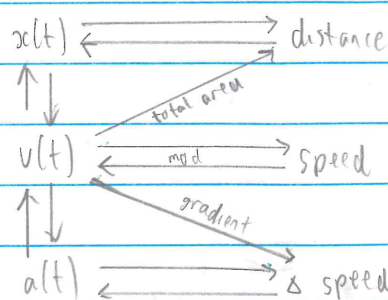 x(t) distance
total area
v(t) mod speed
gradient
a(t) Δ speed